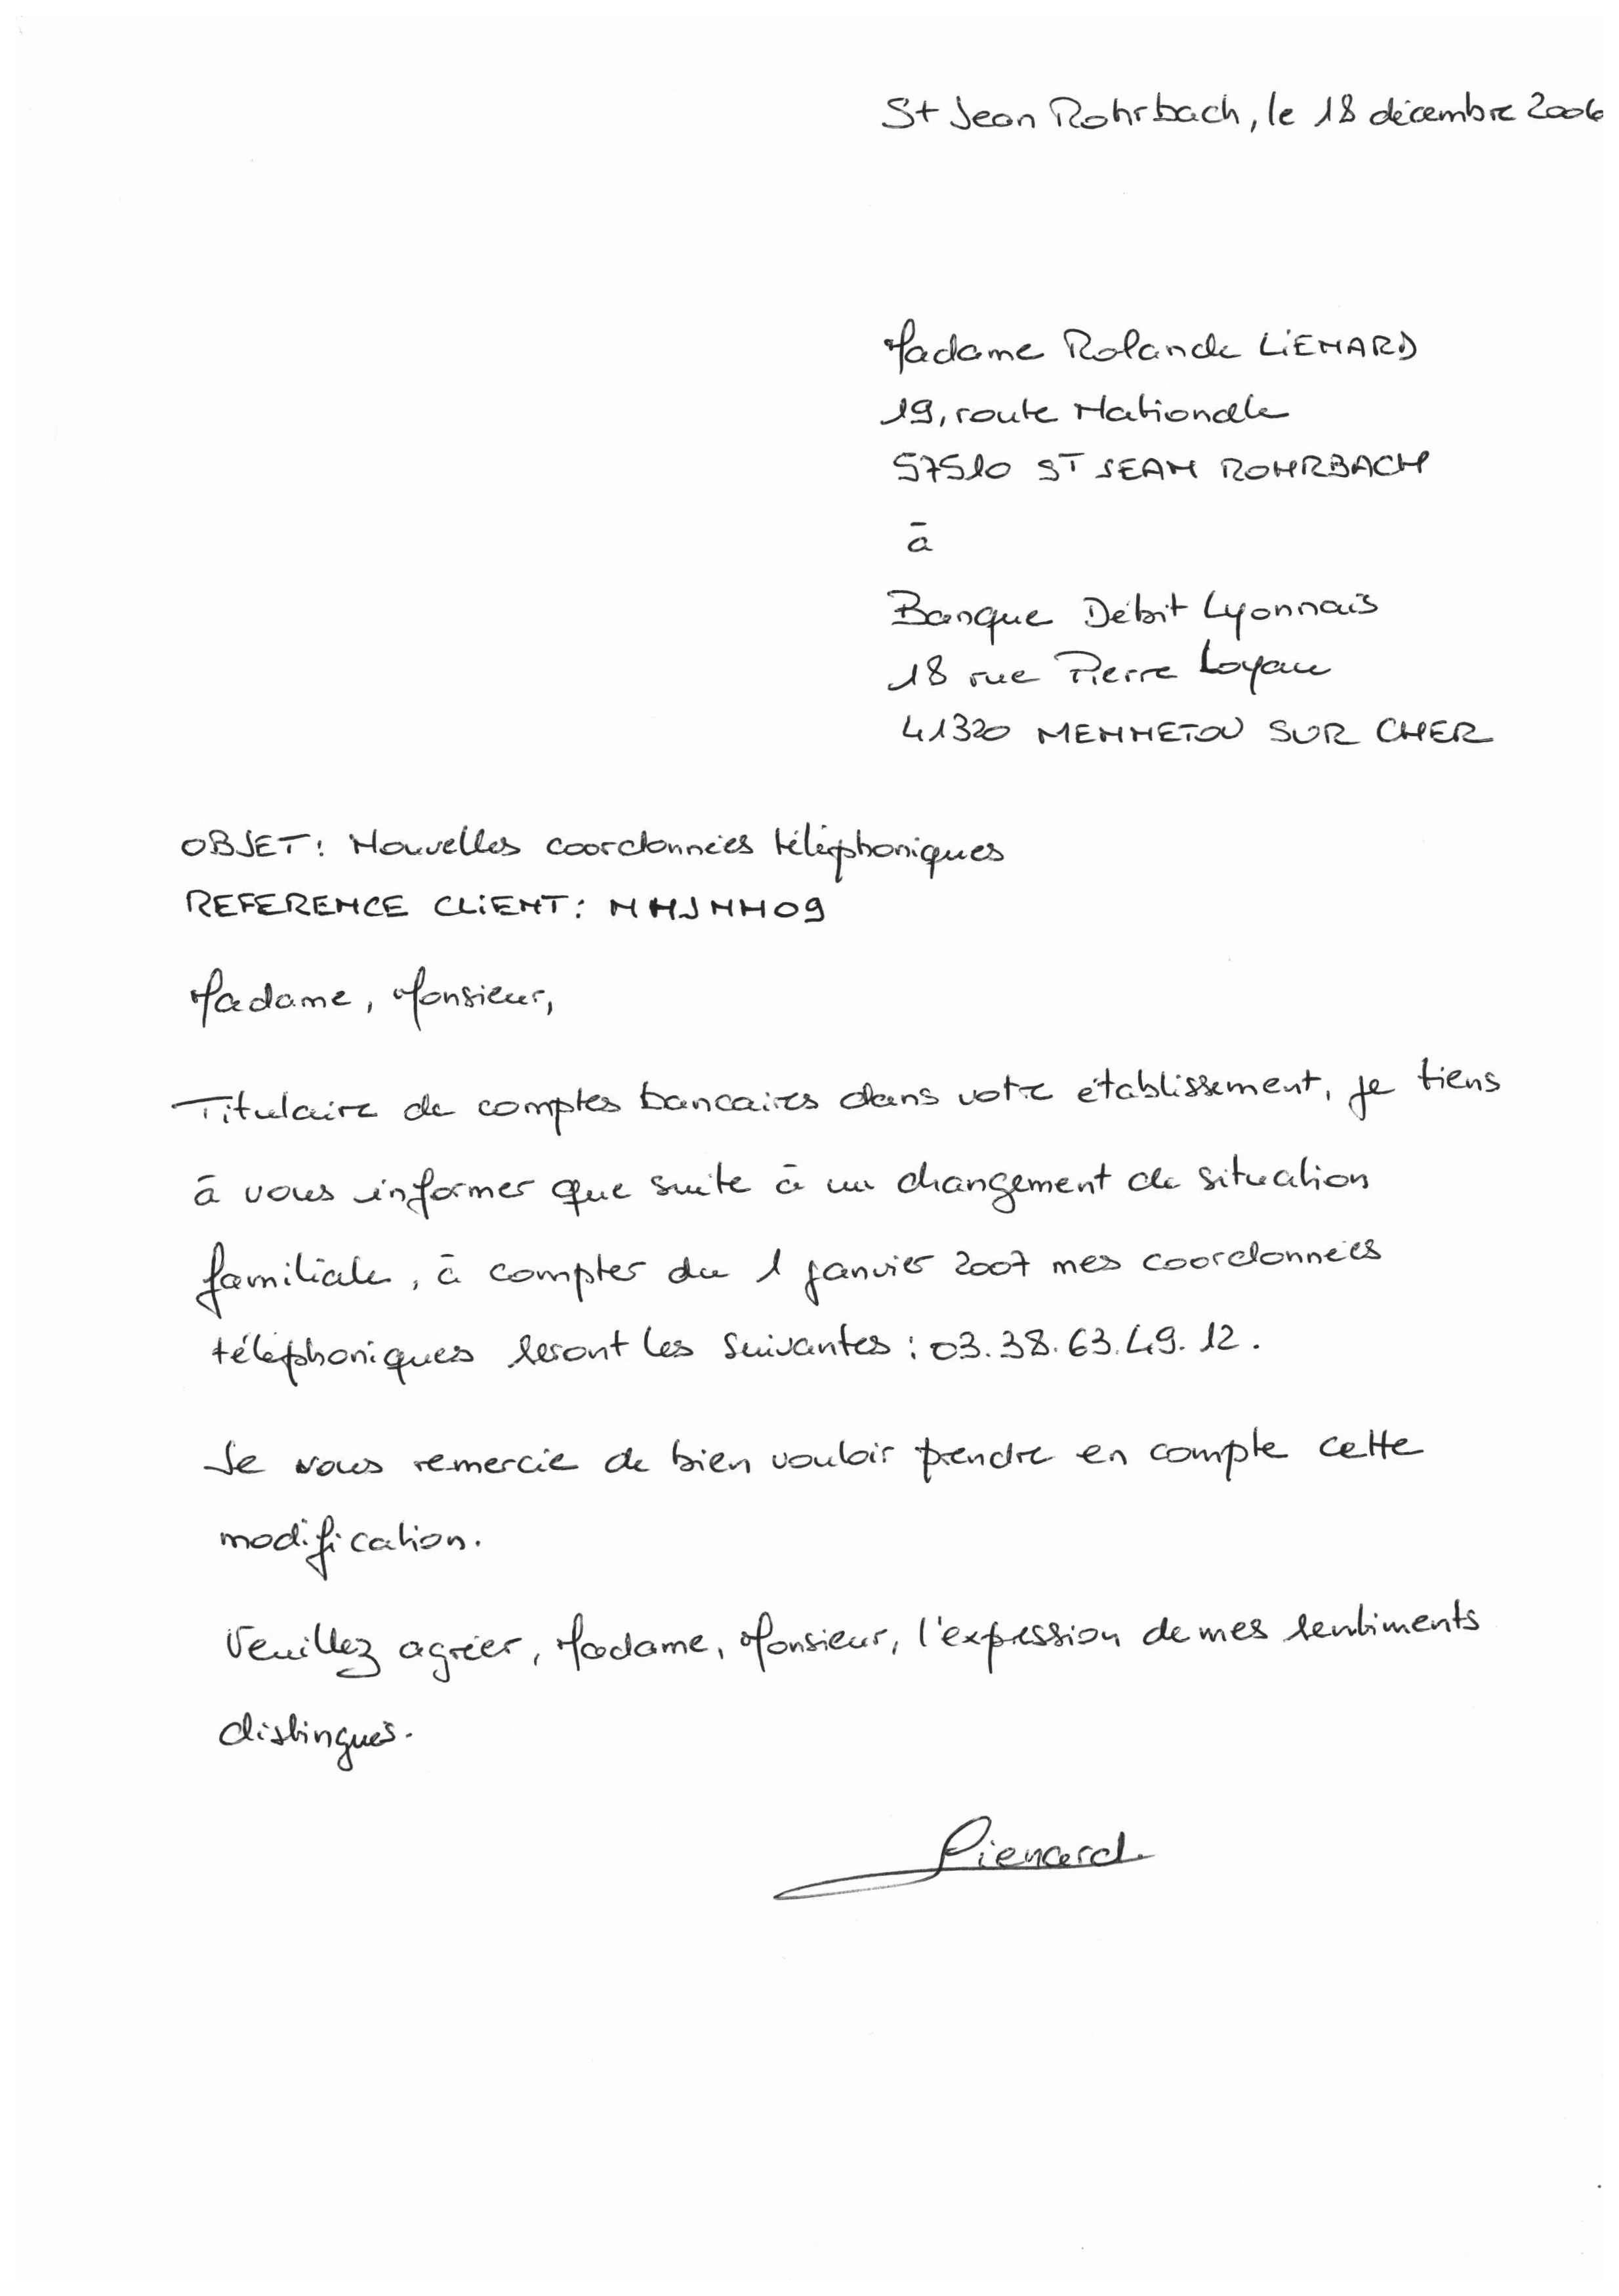 St Jean Rohrbach, le 18 décembre 2006
Madame Rolande LiENARD
19, route Nationale
57510 ST JEAN ROHRBACH
à
Banque Débit Lyonnais
18 rue Pierre Loyau
41320 MENNETOU SUR CHER
OBJET: Nouvelles coordonnées téléphoniques
REFERENCE CLiENT:
Madame, Monsieur,
Titulaire de comptes bancaires dans votre établissement, je tiens
à vous informer que suite à un changement de situation
familiale, à compter du 1 janvier 2007 mes coordonnées
téléphoniques seront les suivantes : 03.38.63.49.12.
Je vous remercie de bien vouloir prendre en compte cette
modification.
Veuillez agréer, Madame, Monsieur, l'expression de mes sentiments
distingués.
Lienard